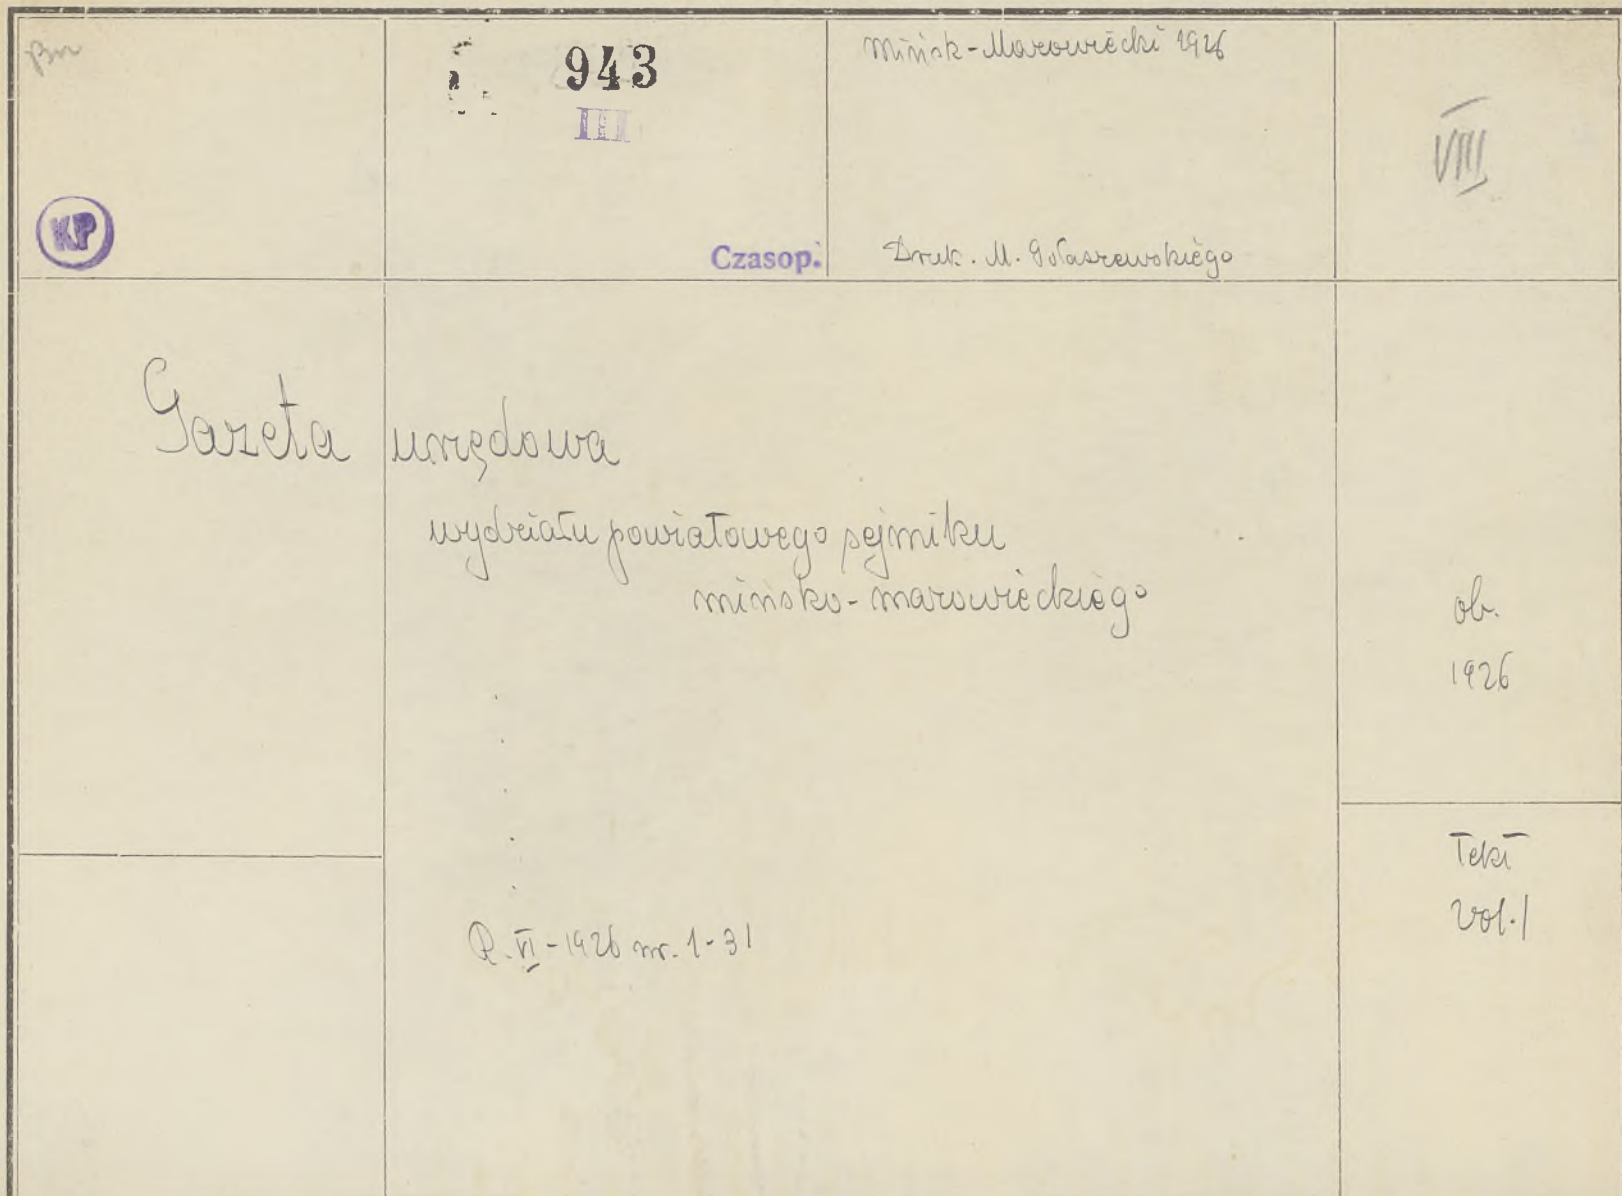 943
III
KP
Czasop.
Mińsk-Mazowiecki 1926
Druk. M. Gołaszewskiego
VIII
Gazeta urzędowa
wydziału powiatowego sejmiku
mińsko-mazowieckiego
R. VI - 1926 nr. 1-31
ob.
1926
Tekt
vol. 1